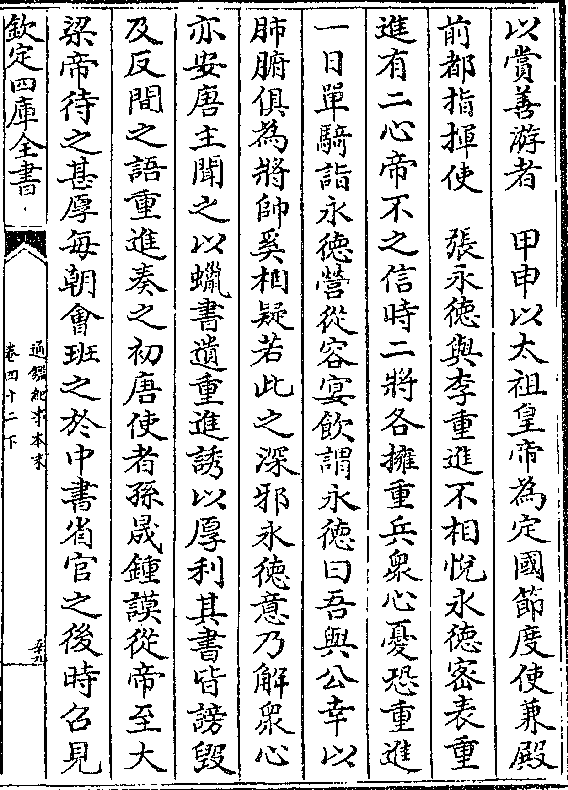 以賞善游者　甲申以太祖皇帝為定國節度使兼殿
前都指揮使　張永徳與李重進不相悅永徳密表重
進有二心帝不之信時二將各擁重兵衆心憂恐重進
一日單騎詣永徳營從容宴飲謂永徳曰吾與公幸以
肺腑俱為將帥奚相疑若此之深邪永徳意乃解衆心
亦安唐主聞之以蠟書遺重進誘以厚利其書皆謗毀
及反間之語重進奏之初唐使者孫晟鍾謨從帝至大
梁帝待之甚厚每朝會班之於中書省官之後時召見
欽定四庫全書
通鑑紀事本末
卷四十二下